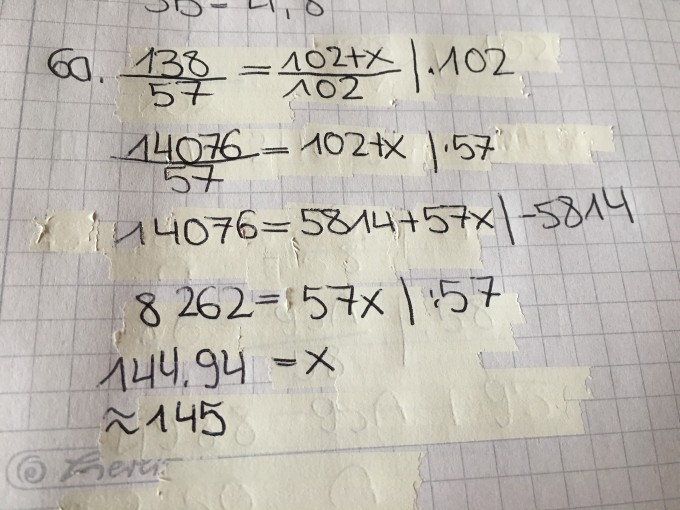 3b = 4,8
6a. 138/57 = 102+x/102 | ·102
14076/57 = 102+x | ·57
14076 = 5814+57x | -5814
8 262 = 57x | :57
144.94 = x
≈ 145